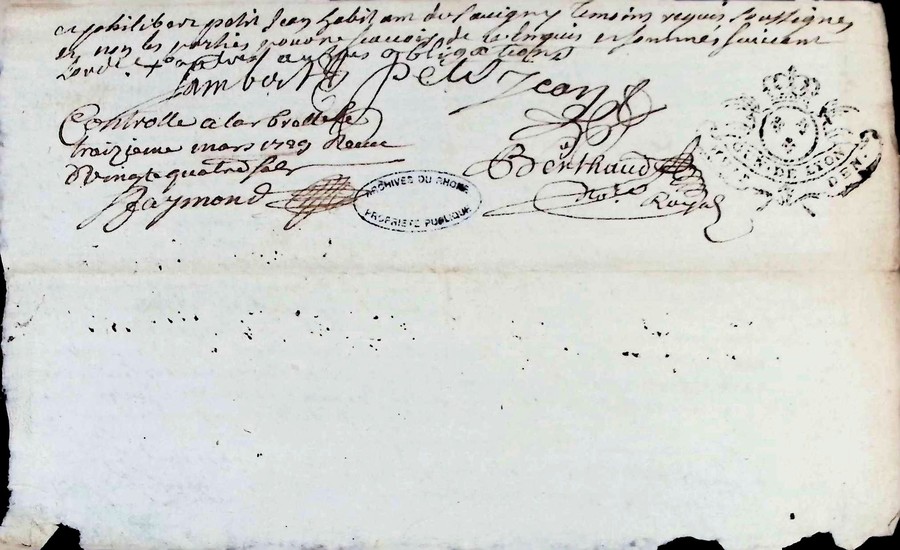 et philibert petit Jean habitant de Savigny temoins requis soussignés
et non les parties pour ne savoir de ce enquis et sommés suivant
Lord.ce + autres obligations
Lambert petit Jean
Controllé a larbrelle le
treizieme mars 1739 Receu
vingt quatre sols
Raymond
Berthaud
No.re Royal
ARCHIVES DU RHONE
PROPRIÉTÉ PUBLIQUE
DE LYON
DEN